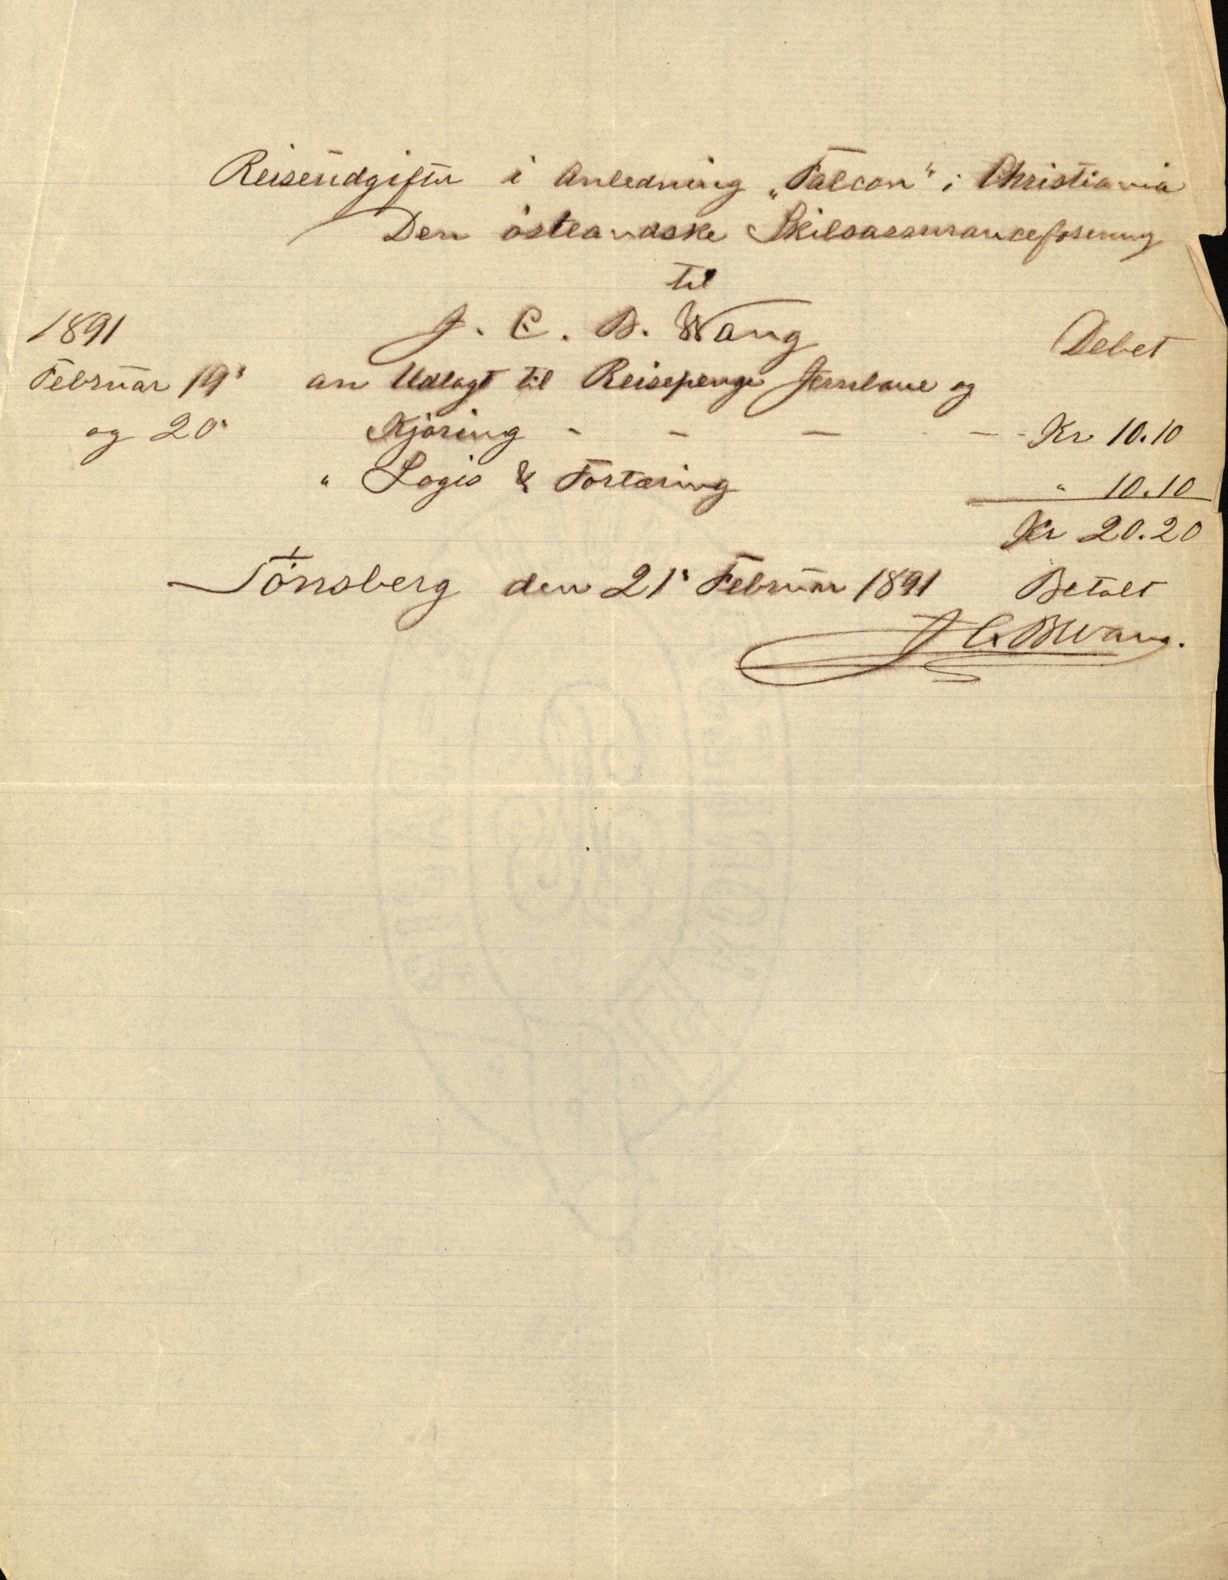 Reiseudgifter i Anledning „Falcon" i Christiania
Den östlandske Skibsassuranceforening
til
J. C. B. Wang
1891 Debet
Februar 19' an Udlagt til Reisepenge Jernbane og
og 20' Kjøring - - - - - Kr 10.10
" Logis & Fortæring " 10.10
Kr 20.20
Tönsberg den 21' Februar 1891 Betalt
J C B Wang.